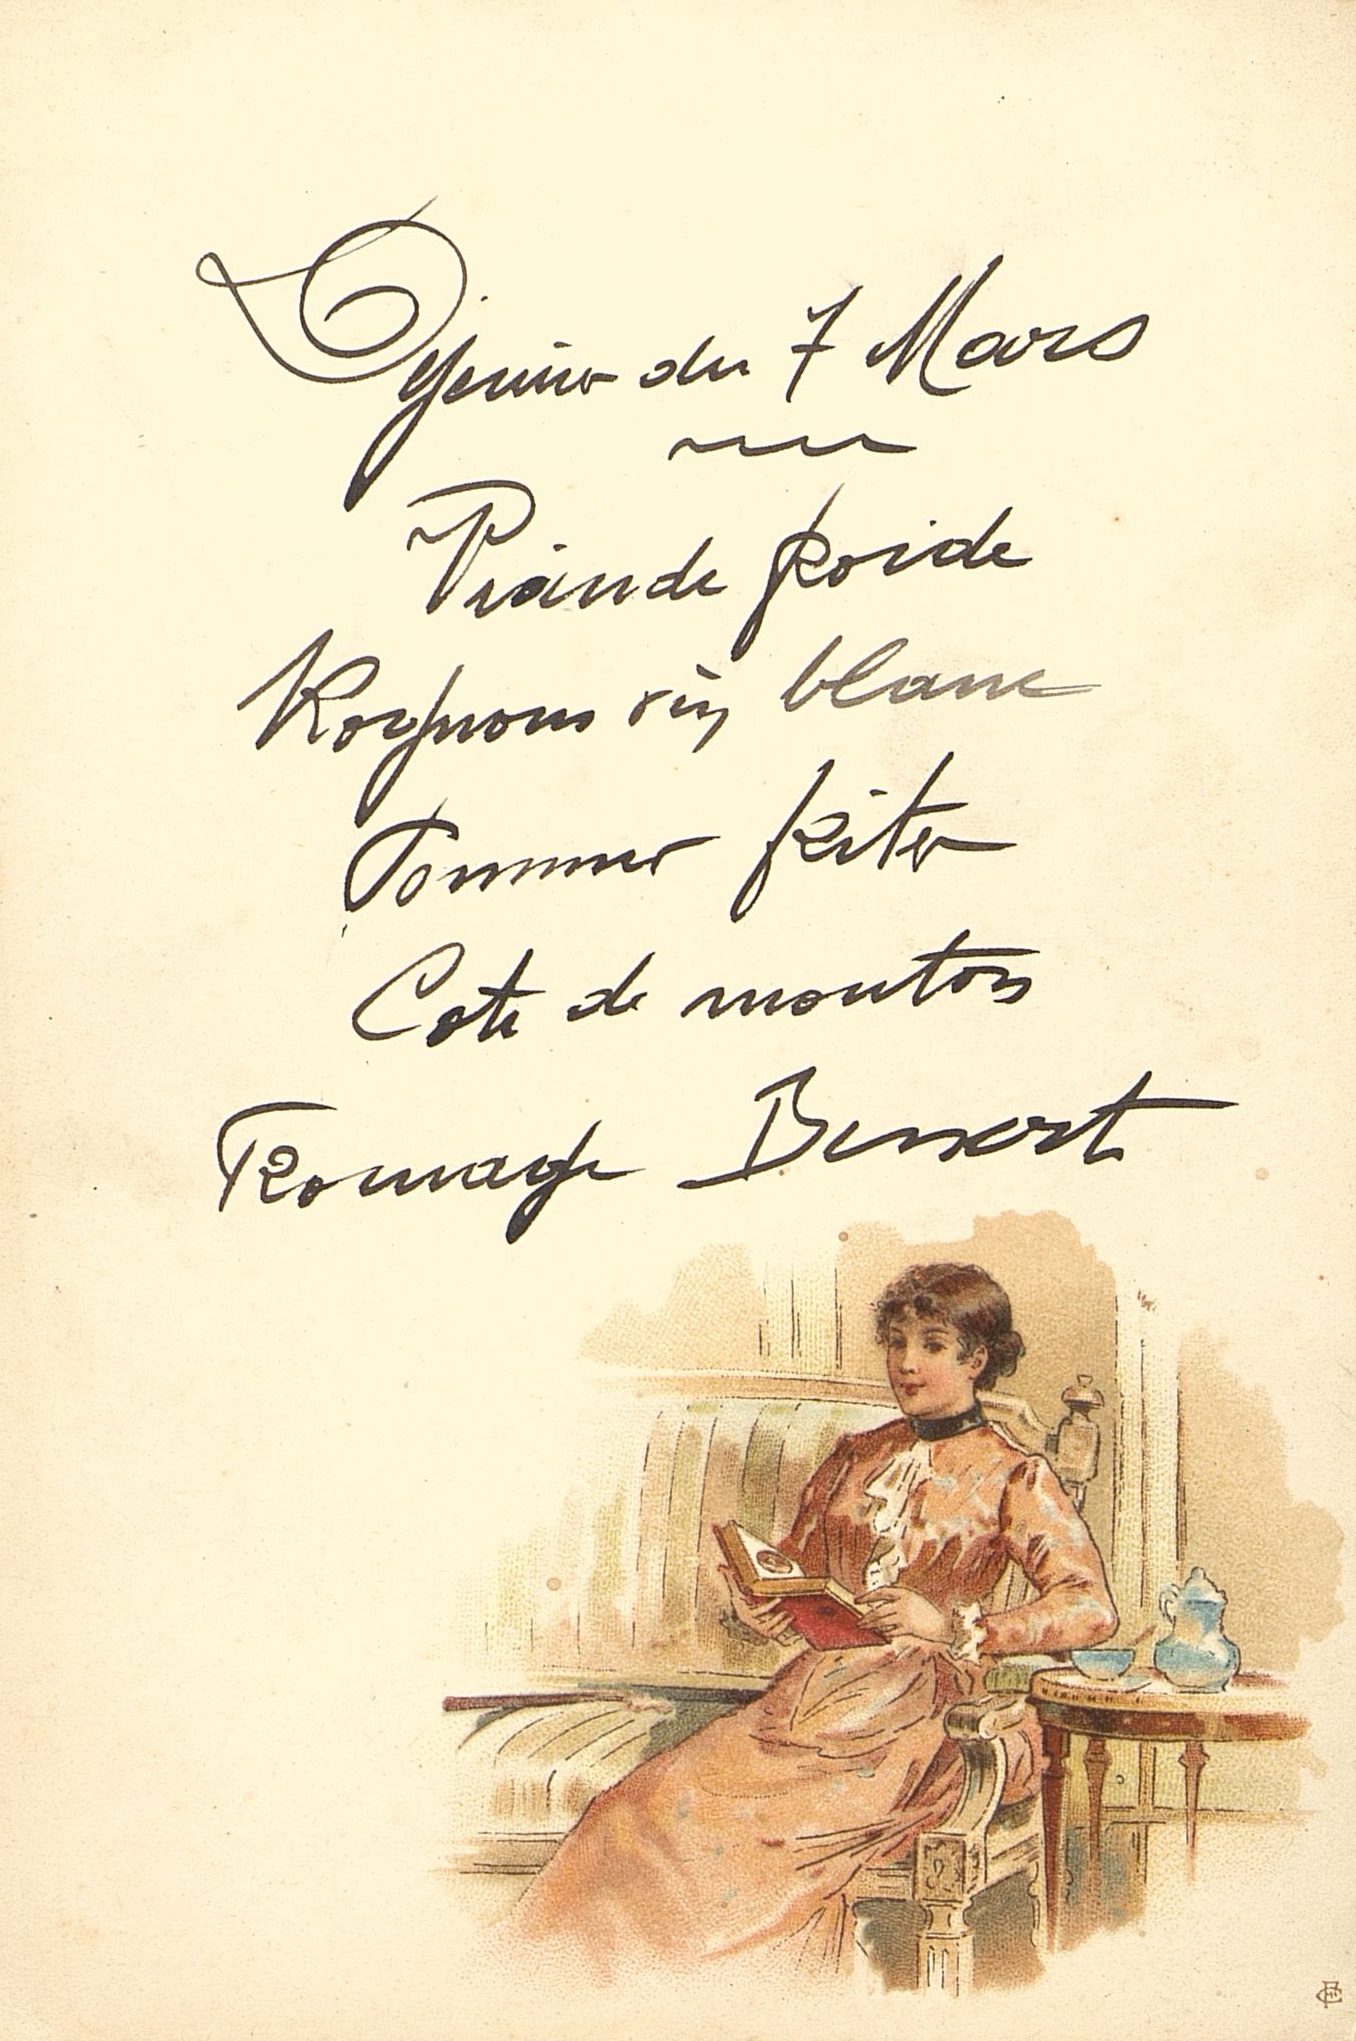 Dejeuner du 7 Mars
Viande froide
Rognons vin blanc
Pommes frites
Cote de mouton
Fromage Dessert